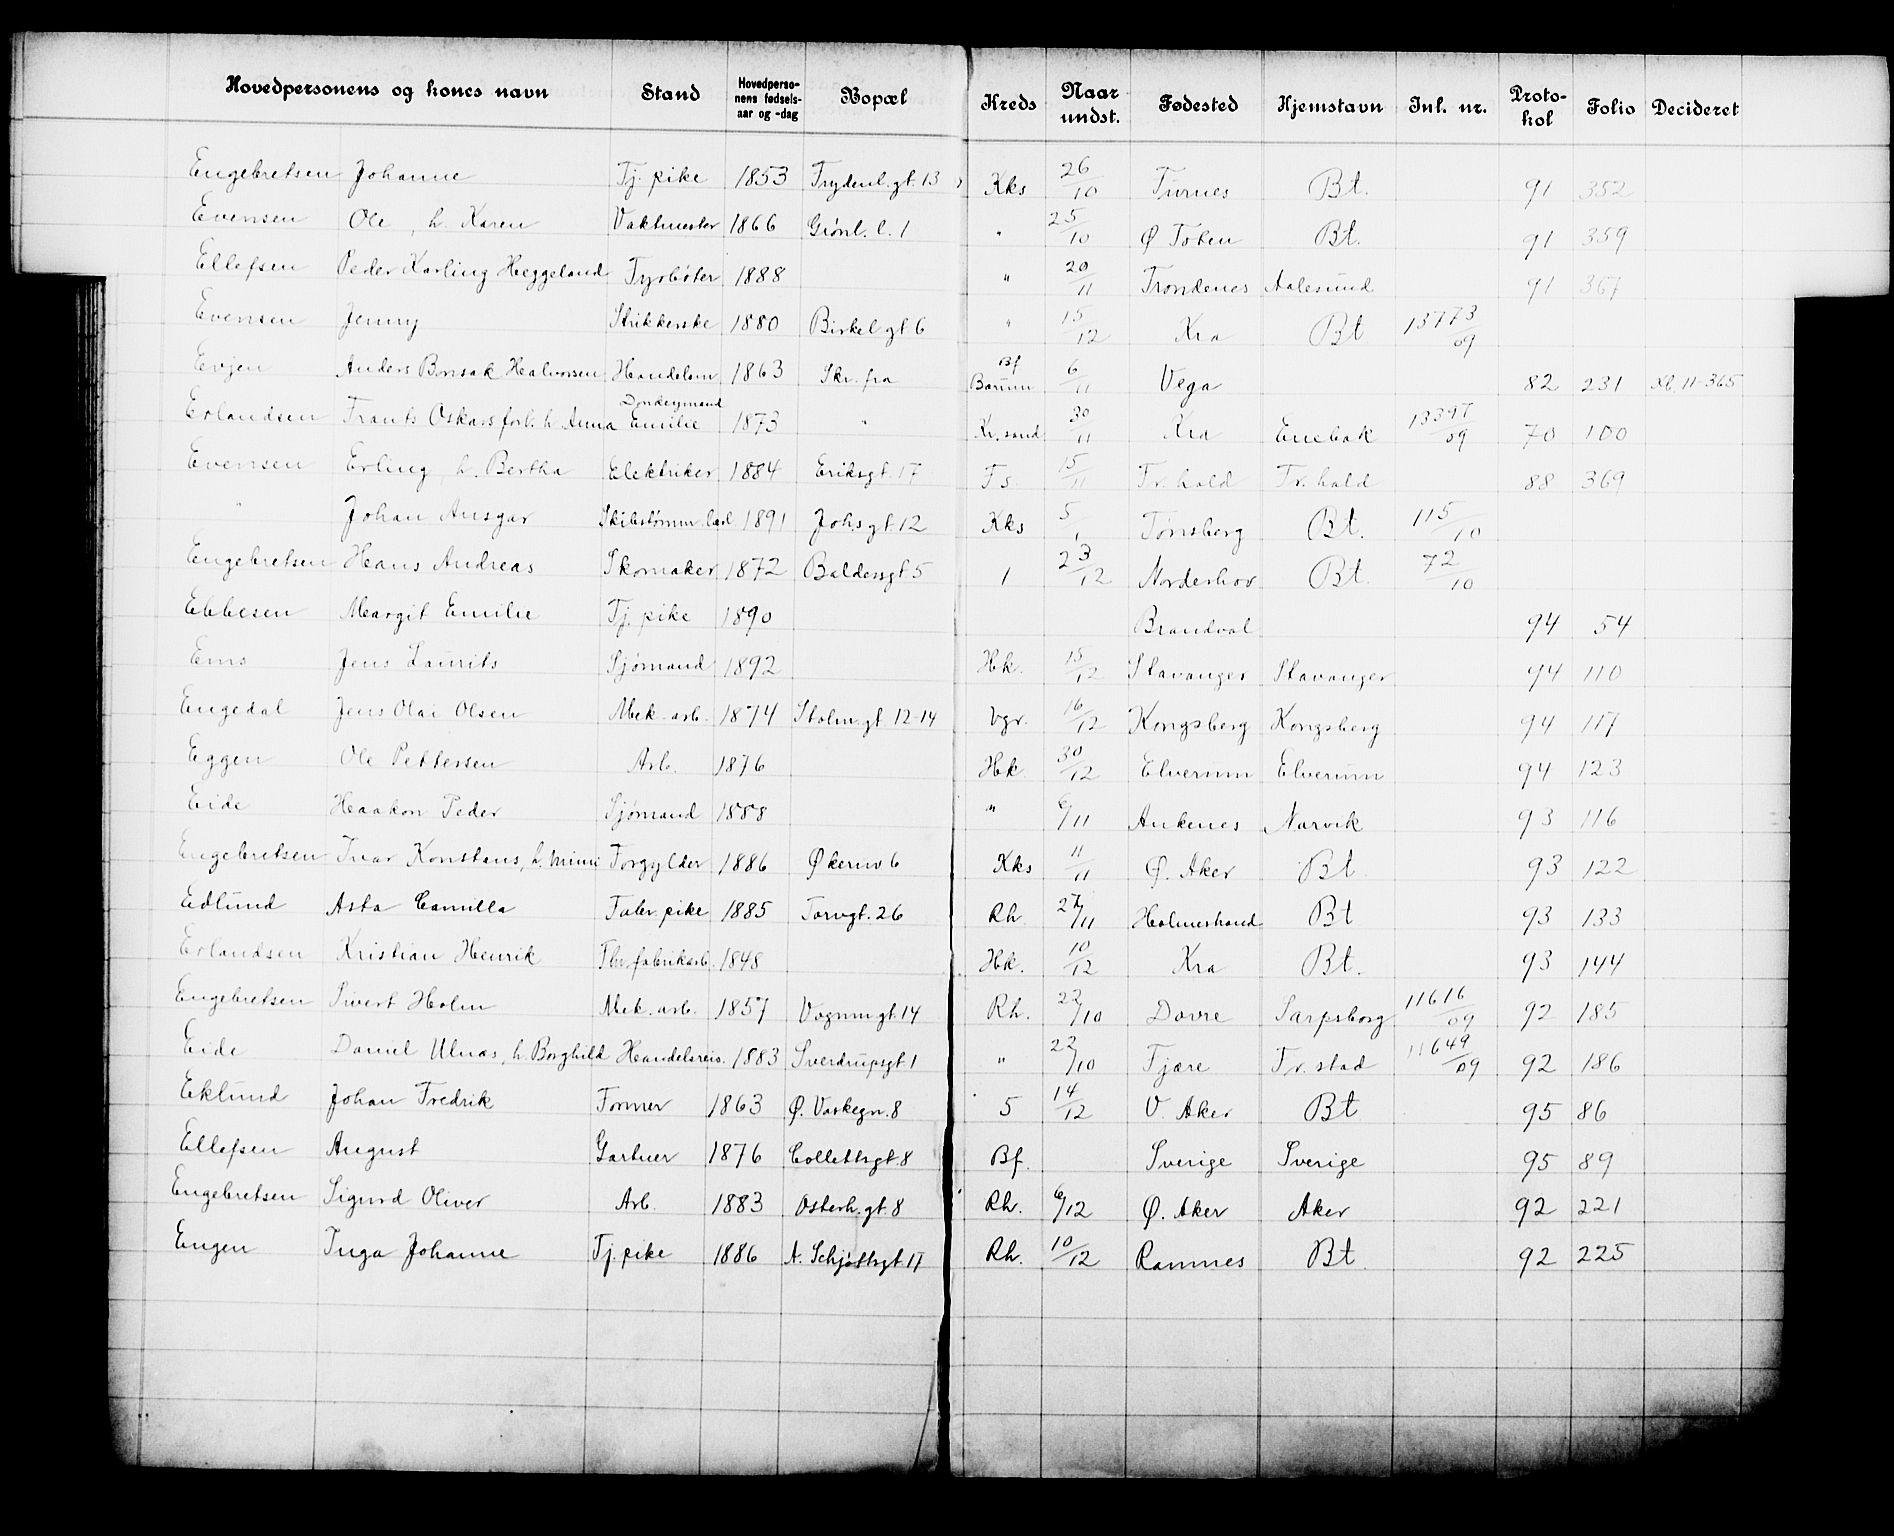 Hovedpersonens og kones navn Stand Hovedperso-nens fødsels-aar og -dag Bopæl Kreds Naar undst. Fødested Hjemstavn Inl. nr. Proto-kol Folio Decideret
Engebretsen Johanne Tj. pike 1853 Frydenl. gt. 13 Kks 26/10 Furnes Bt. 91 352
Evensen Ole, h. Karen Vaktmester 1866 Grønl. l. 1 " 25/10 Ø Toten Bt. 91 359
Ellefsen Peder Karling Heggeland Fyrbøter 1888 " 20/11 Trondenes Aalesund 91 367
Evensen Jenny Strikkerske 1880 Birkel gt 6 " 15/12 Kra Bt 13773/09
Evjen Anders Brusak Halvorsen Handelsm 1863 Skr. fra Bf Bærum 6/11 Vega 82 231 Xl. 11-365
Erlandsen Frants Oskar forl. h Anna Emilie Donkeymand 1873 " Kr. sand 30/11 Kra Enebak 13397/09 70 100
Evensen Erling, h. Bertha Elektriker 1884 Eriksgt. 17 Fs 15/11 Fr. hald Fr. hald 88 369
" Johan Ansgar Skibstømm. 1891 Johsgt. 12 Kks 5/1 Tønsberg Bt. 115/10
Engebretsen Hans Andreas Skomaker 1872 Baldersgt 5 1 23/12 Norderhov Bt. 72/10
Ebbesen Margit Emilie Tj. pike 1890 Brandval 94 54
Ems Jens Laurits Sjømand 1892 Hk. 15/12 Stavanger Stavanger 94 110
Engedal Jens Olai Olsen Mek. arb. 1874 Stolm. gt. 12-14 Vgr. 16/12 Kongsberg Kongsberg 94 117
Eggen Ole Pettersen Arb. 1876 Hk 30/12 Elverum Elverum 94 123
Eide Haakon Peder Sjømand 1888 " 6/11 Ankenes Narvik 93 116
Engebretsen Ivar Konstans, h. Minni Forgylder 1886 Økernv 6 Kks 11/11 Ø. Aker Bt 93 122
Edlund Asta Camilla Fabr. pike 1885 Torvgt. 26 Rh. 27/11 Holmestrand Bt 93 133
Erlandsen Kristian Henrik Fhv. fabrikarb. 1848 Hk. 10/12 Kra Bt. 93 144
Engebretsen Sivert Holm Mek. arb. 1857 Vognm gt. 14 Rh. 22/10 Dovre Sarpsborg 11616/09 92 185
Eide Daniel Ulnas, h. Borghild Handelsreis. 1883 Sverdrupsgt. 1 " 22/10 Fjære Fr. stad 11649/09 92 186
Eklund Johan Fredrik Former 1863 Ø. Vaskegn. 8 5 14/12 V. Aker Bt 95 86
Ellefsen August Gartner 1876 Collettsgt. 8 Bf. Sverige Sverige 95 89
Engebretsen Sigurd Oliver Arb. 1883 Osterh. gt. 8 Rh. 6/12 Ø. Aker Aker 92 221
Engen Inga Johanne Tj. pike 1886 A. Schjøttsgt 17 Rh. 10/12 Ramnes Bt 92 225